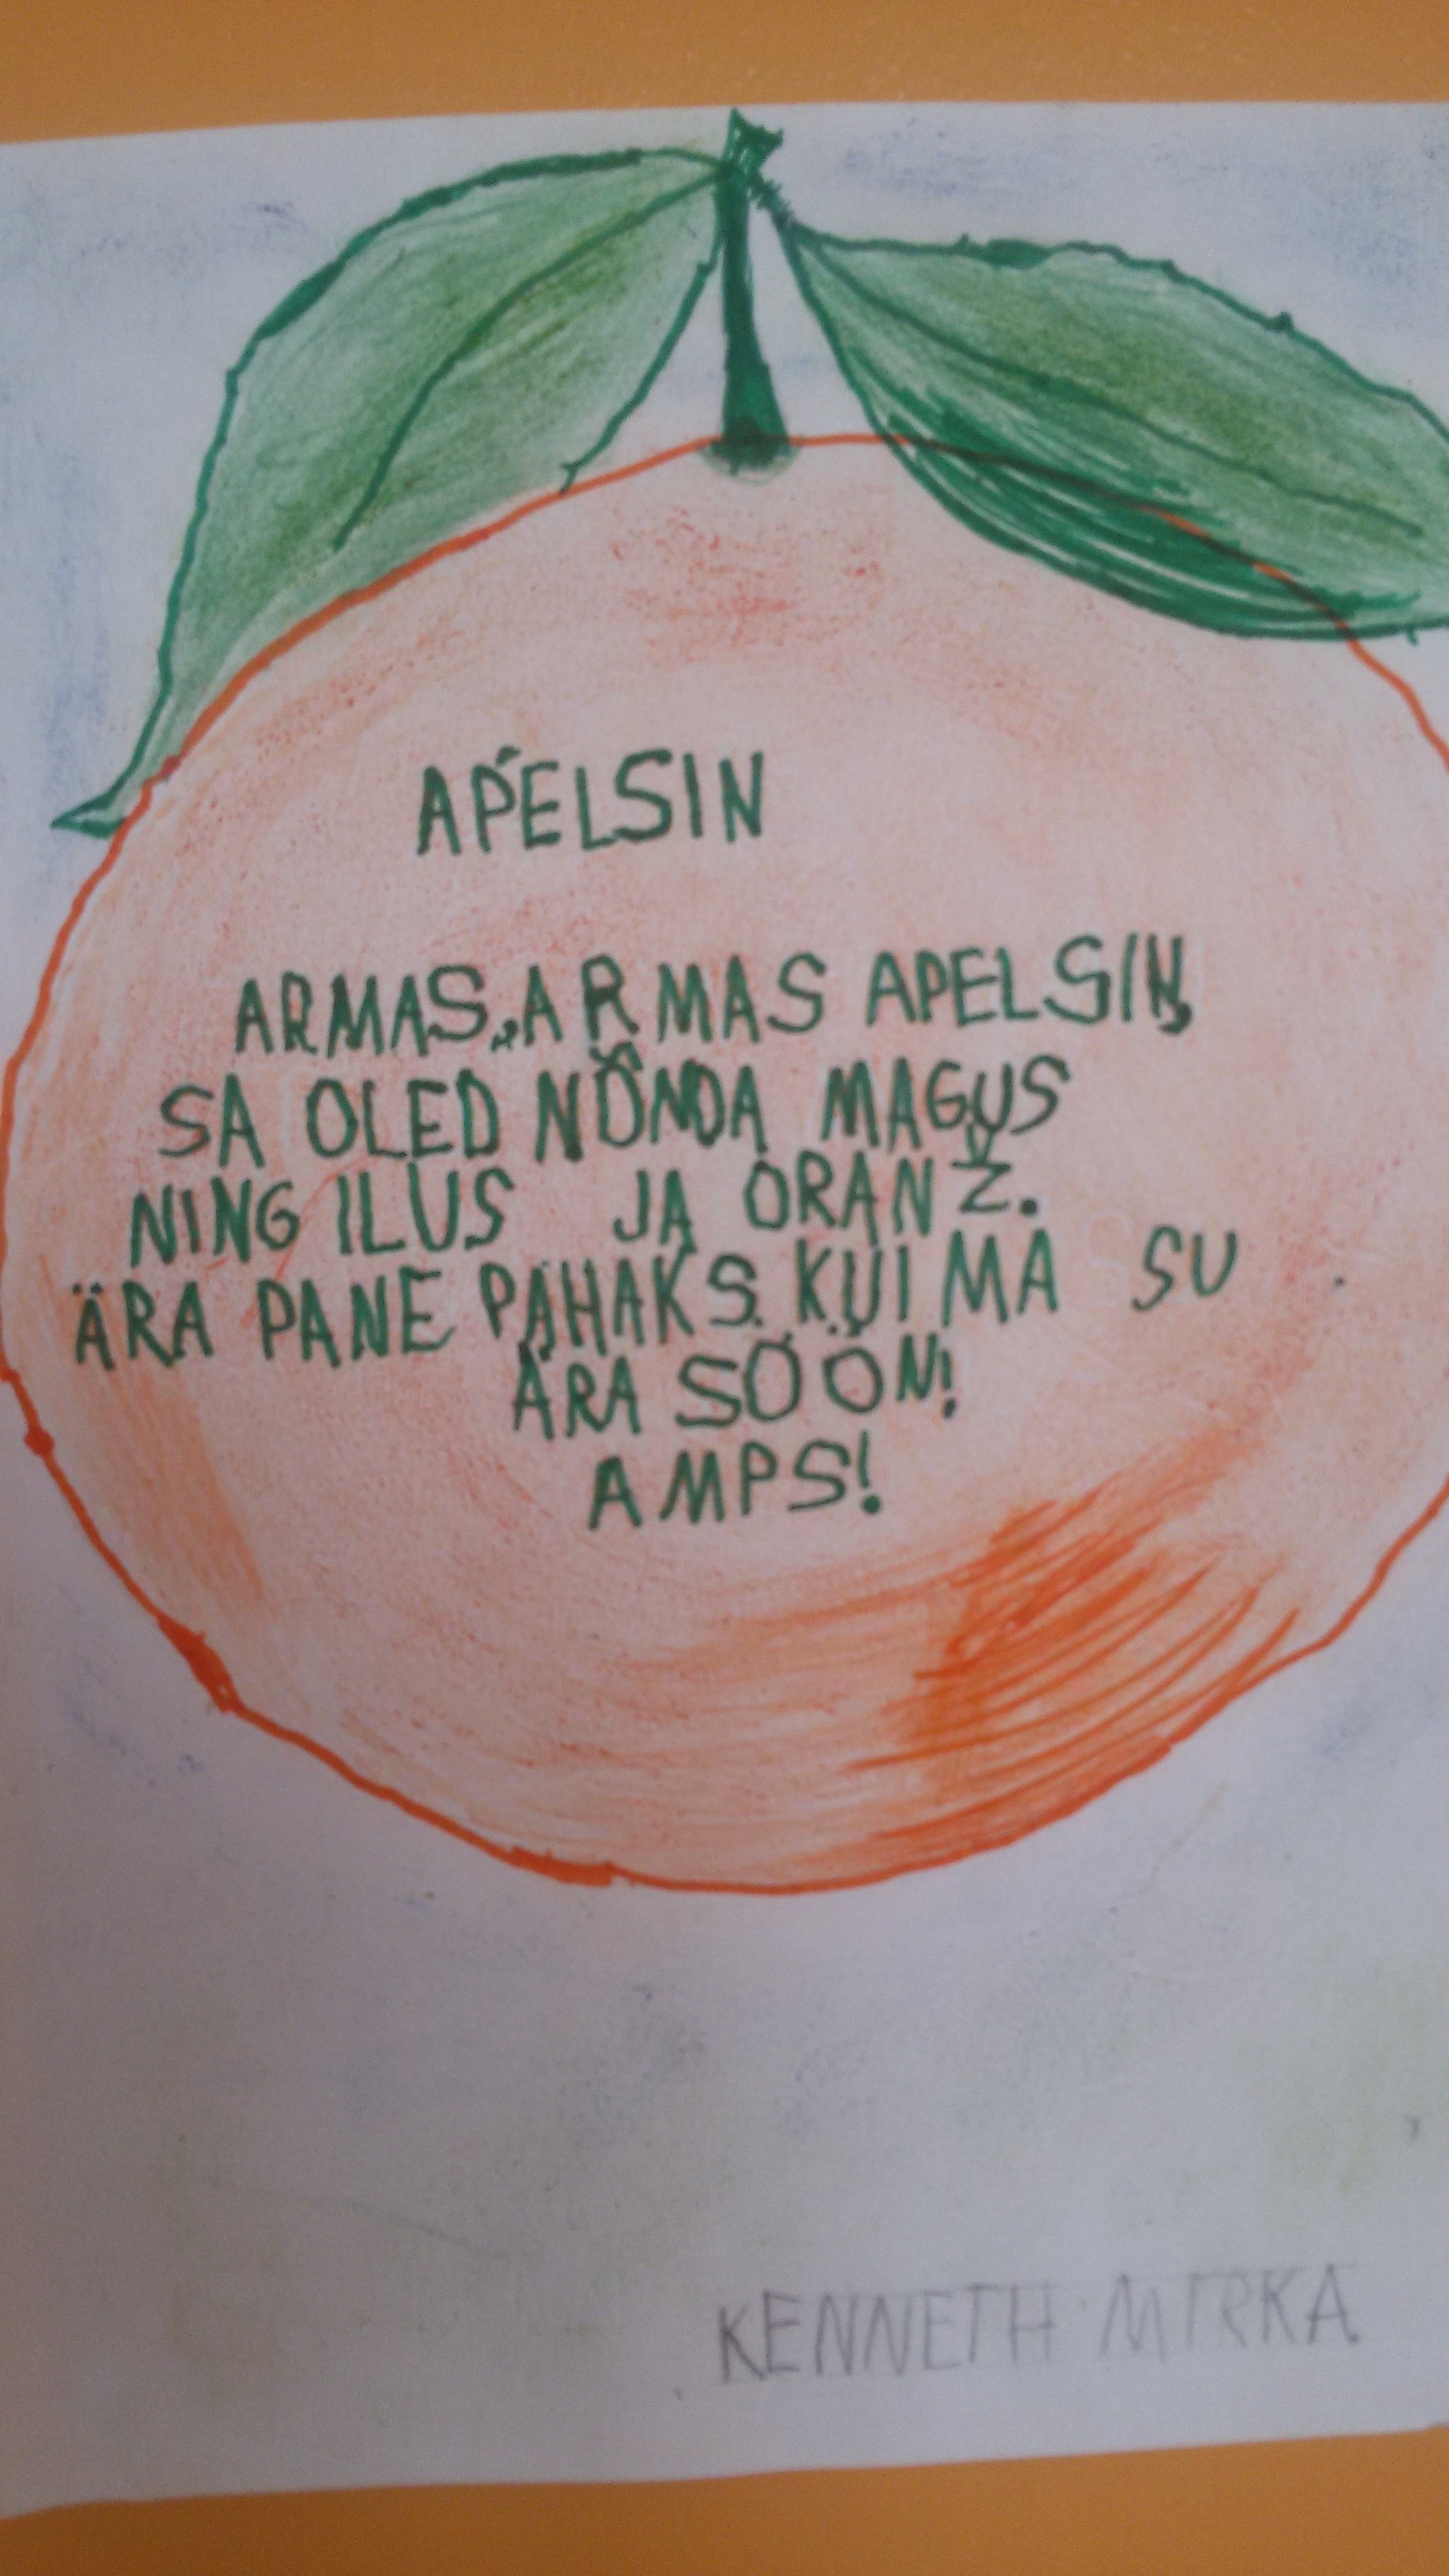 APELSIN
ARMAS, ARMAS APELSIN,
SA OLED NÕNDA MAGUS
NING ILUS JA ORANŽ.
ÄRA PANE PAHAKS KUI MA SU
ÄRA SÖÖN!
AMPS!
KENNETH MIRKA